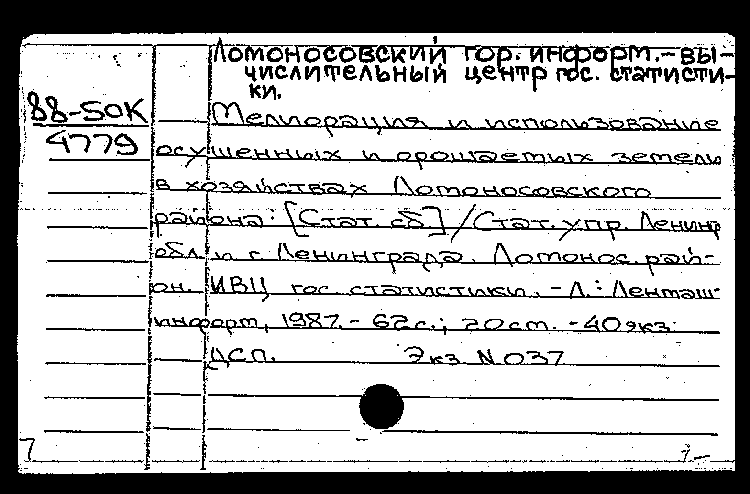 Ломоносовский гор. информ.-вы-
числительный центр гос. статисти-
ки.
88-50К
4779
Мелиорация и использование
осушенных и орошаемых земель
в хозяйствах Ломоносовского
района: [Стат. сб.] / Стат. упр. Ленингр
обл. и г. Ленинграда. Ломонос. рай-
он. ИВЦ гос. статистики. - Л.: Ленташ-
информ, 1987. - 62 с.; 20 см. - 40 экз.
ДСП. Экз. N 037